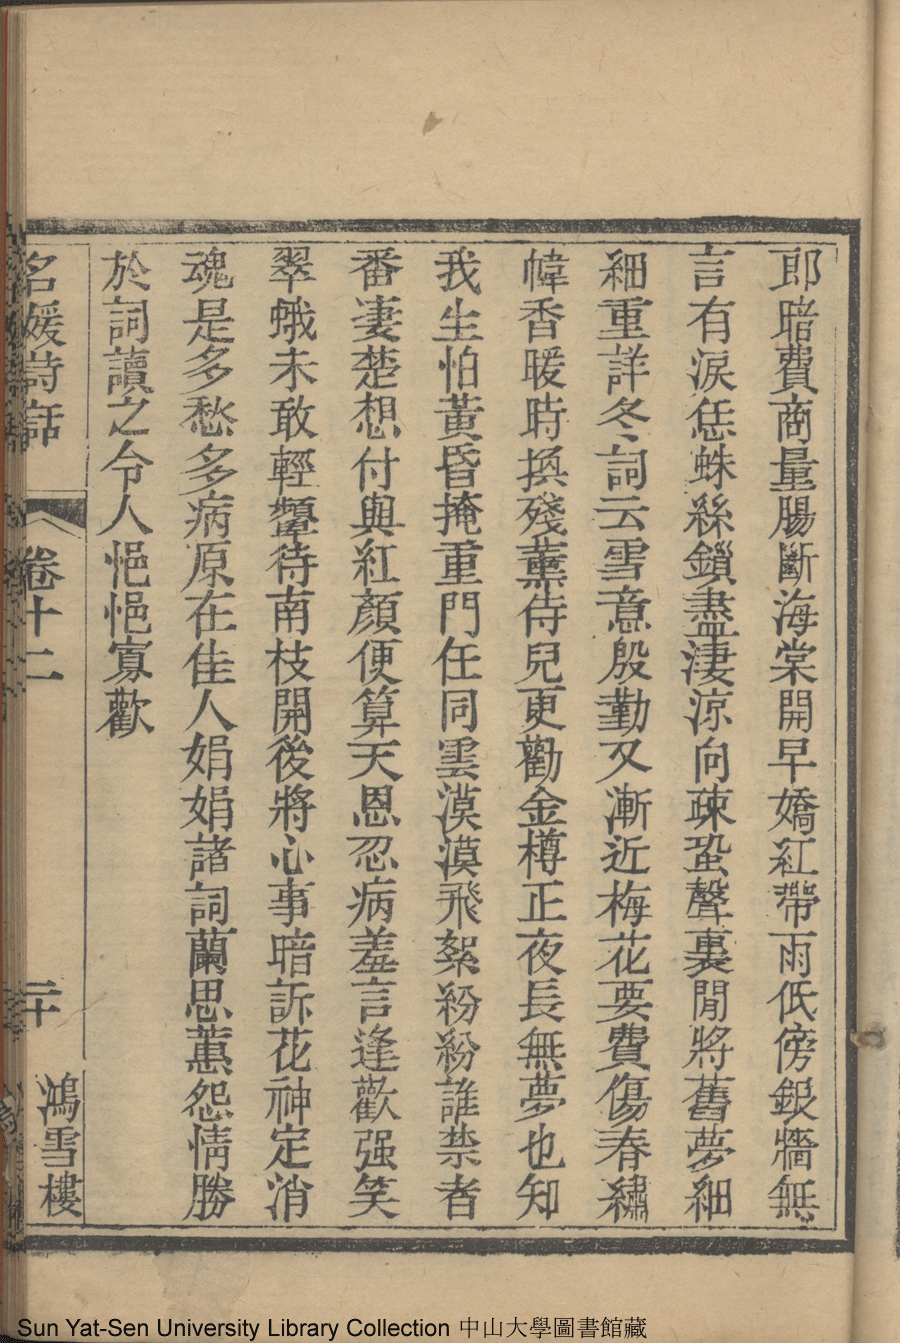 郎暗費商量腸斷海棠開早嬌紅帶雨低傍銀牆無
言有淚恁蛛絲鎖盡淒涼向疎蛩聲裏閒將舊夢細
細重詳冬詞云雪意殷勤又漸近梅花要費傷春繡
幃香暖時換殘薰侍兒更勸金樽正夜長無夢也知
我生怕黃昏掩重門任同雲漠漠飛絮紛紛誰禁者
番淒楚想付與紅顏便算天恩忍病羞言逢歡强笑
翠蛾未敢輕顰待南枝開後將心事暗訴花神定消
魂是多愁多病原在佳人娟娟諸詞蘭思蕙怨情勝
於詞讀之令人悒悒寡歡
名媛詩話 卷十二 二十 鴻雪樓
Sun Yat-Sen University Library Collection 中山大學圖書館藏